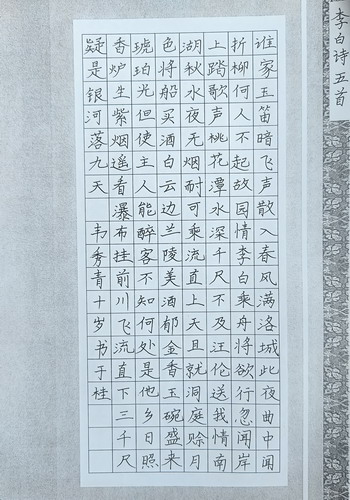 李白诗五首
谁家玉笛暗飞声散入春风满洛城此夜曲中闻
折柳何人不起故园情李白乘舟将欲行忽闻岸
上踏歌声桃花潭水深千尺不及汪伦送我情南
湖秋水夜无烟耐可乘流直上天且就洞庭赊月
色将船买酒白云边兰陵美酒郁金香玉碗盛来
琥珀光但使主人能醉客不知何处是他乡日照
香炉生紫烟遥看瀑布挂前川飞流直下三千尺
疑是银河落九天 韦秀青十岁书于桂